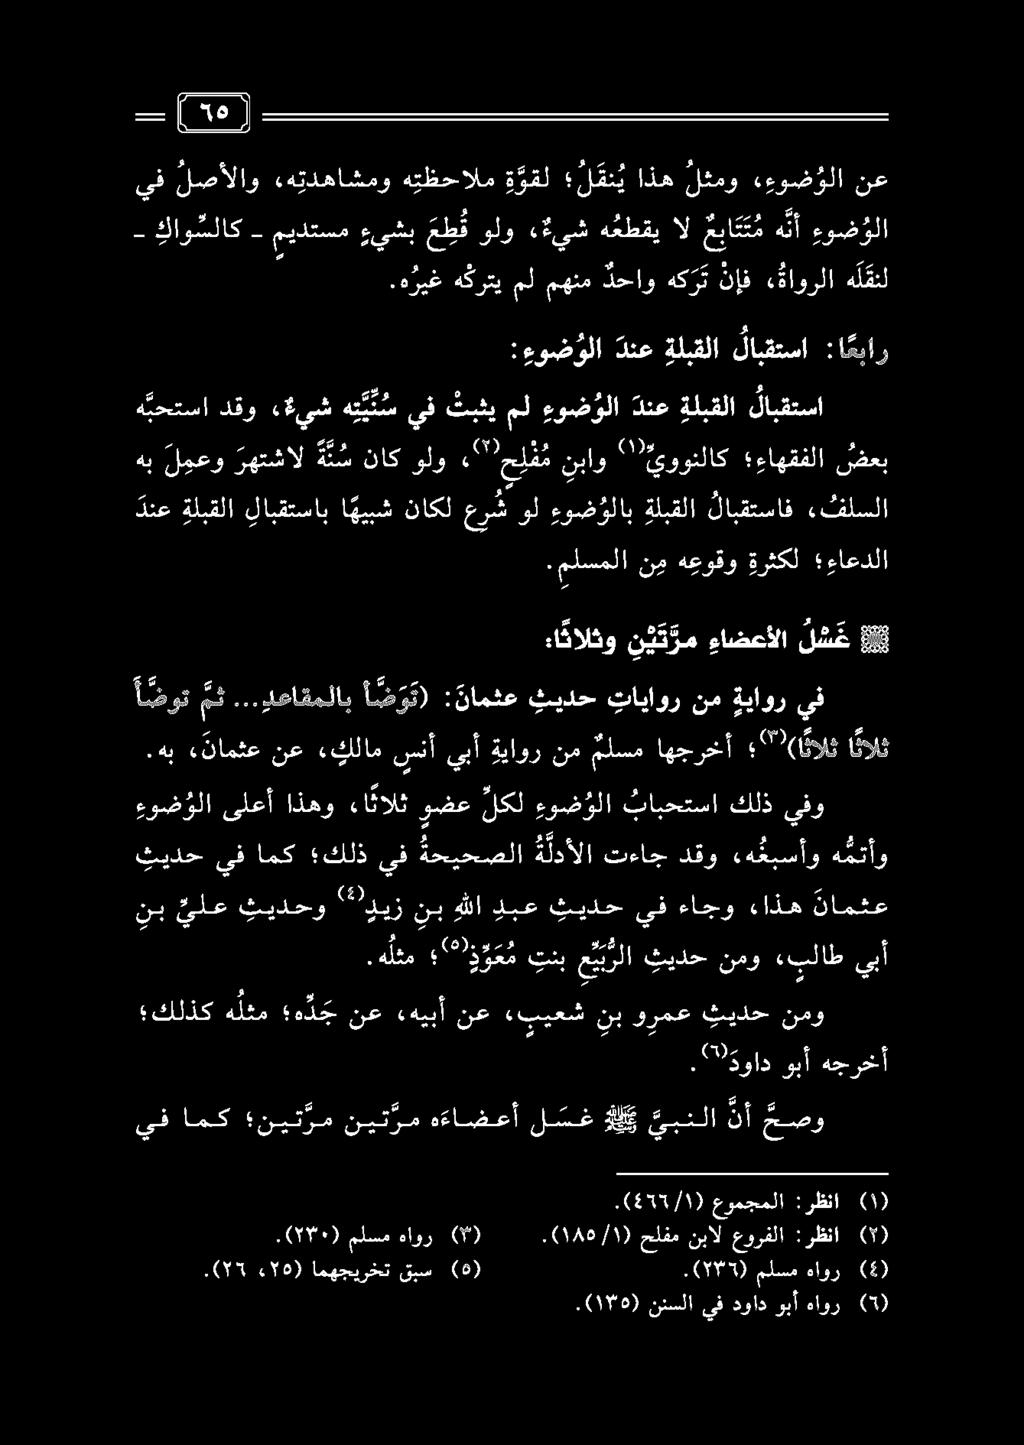 ٦٥
عن الوُضوءِ، ومثلُ هذا يُنقَلُ؛ لقوَّةِ ملاحظتِه ومشاهدتِه، والأصلُ في
الوُضوءِ أنَّه مُتَتَابِعٌ لا يقطعُه شيءٌ، ولو قُطِعَ بشيءٍ مستديمٍ ـ كالسِّواكِ ـ
لنقَلَه الرواةُ، فإنْ تَرَكه واحدٌ منهم لم يتركْه غيرُه.
رابعًا: استقبالُ القبلةِ عندَ الوُضوءِ:
استقبالُ القبلةِ عندَ الوُضوءِ لم يثبتْ في سُنِّيَّتِه شيءٌ، وقد استحبَّه
بعضُ الفقهاءِ؛ كالنوويِّ(١) وابنِ مُفْلِحٍ(٢)، ولو كان سُنَّةً لاشتهرَ وعمِلَ به
السلفُ، فاستقبالُ القبلةِ بالوُضوءِ لو شُرِع لكان شبيهًا باستقبالِ القبلةِ عندَ
الدعاءِ؛ لكثرةِ وقوعِه مِن المسلمِ.
غَسْلُ الأعضاءِ مرَّتَيْنِ وثلاثًا:
في روايةٍ من رواياتِ حديثِ عثمانَ: (تَوَضَّأَ بالمقاعدِ... ثمَّ توضَّأَ
ثلاثًا ثلاثًا)(٣)؛ أخرجها مسلمٌ من روايةِ أبي أنسٍ مالكٍ، عن عثمانَ، به.
وفي ذلك استحبابُ الوُضوءِ لكلِّ عضوٍ ثلاثًا، وهذا أعلى الوُضوءِ
وأتمُّه وأسبغُه، وقد جاءت الأدلَّةُ الصحيحةُ في ذلك؛ كما في حديثِ
عثمانَ هذا، وجاء في حديثِ عبدِ اللهِ بنِ زيدٍ(٤) وحديثِ عليِّ بنِ
أبي طالبٍ، ومن حديثِ الرُّبَيِّعِ بنتِ مُعَوِّذٍ(٥)؛ مثلُه.
ومن حديثِ عمرِو بنِ شعيبٍ، عن أبيه، عن جَدِّه؛ مثلُه كذلك؛
أخرجه أبو داودَ(٦).
وصحَّ أنَّ النبيَّ ﷺ غسَل أعضاءَه مرَّتين مرَّتين؛ كما في
(١) انظر: المجموع (٤٦٦/١).
(٢) انظر: الفروع لابن مفلح (١٨٥/١). (٣) رواه مسلم (٢٣٠).
(٤) رواه مسلم (٢٣٦). (٥) سبق تخريجهما (٢٥، ٢٦).
(٦) رواه أبو داود في السنن (١٣٥).